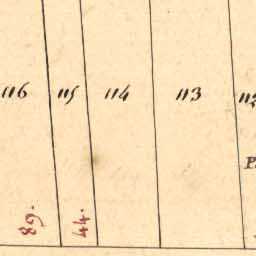 116 115 114 113
89.
44.